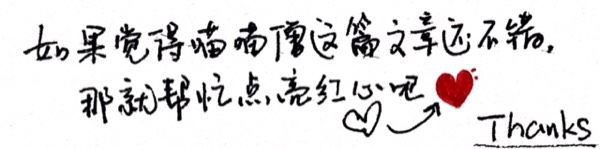 如果觉得喵喃僧这篇文章还不错,
那就帮忙点亮红心吧
Thanks